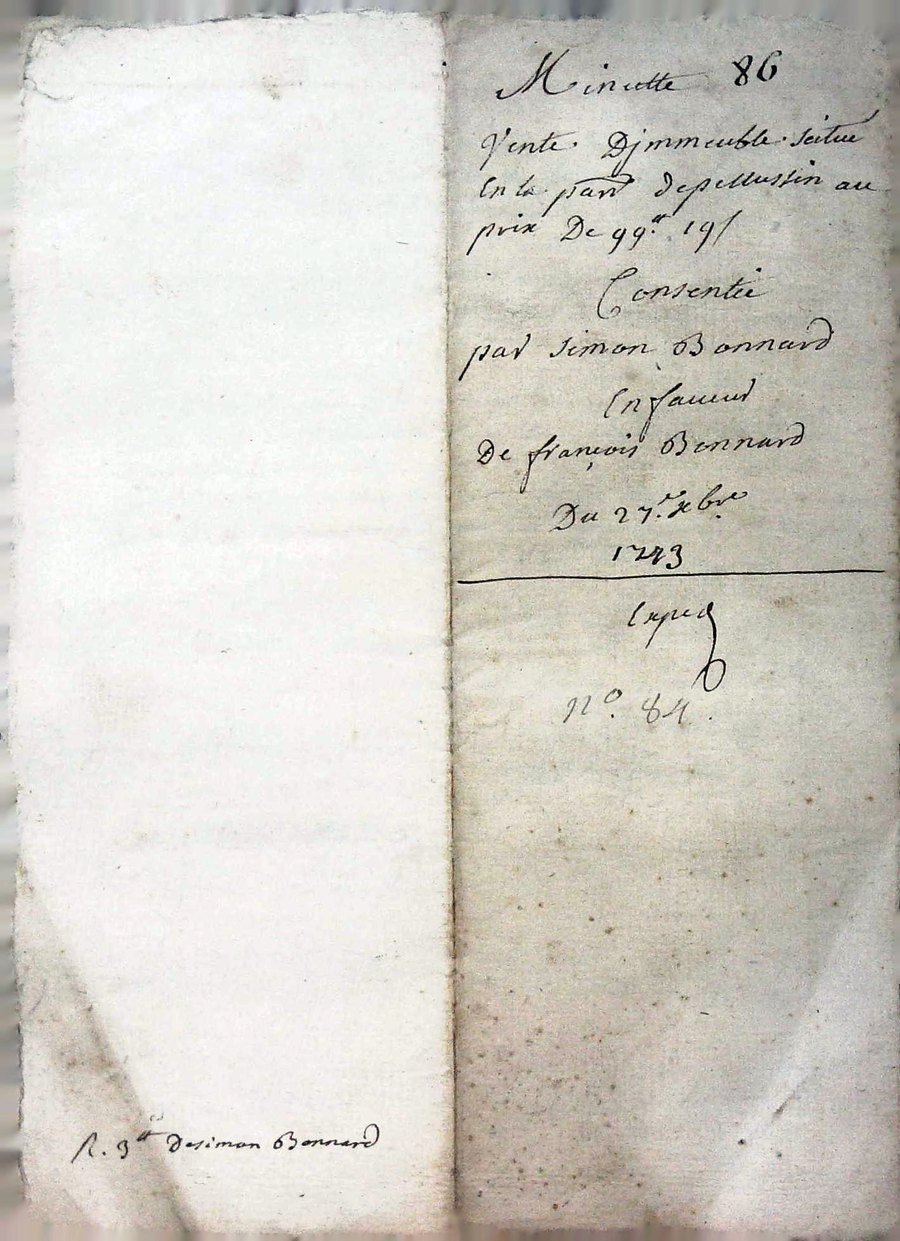 Minutte 86
Vente Djmmeuble scitué
En la parr depellussin au
prix De 99tt 19s
Consentie
par simon Bonnard
En faueur
De françois Bonnard
Du 27e xbre
1743
Exped
no. 84.
R. 3tt Desimon Bonnard